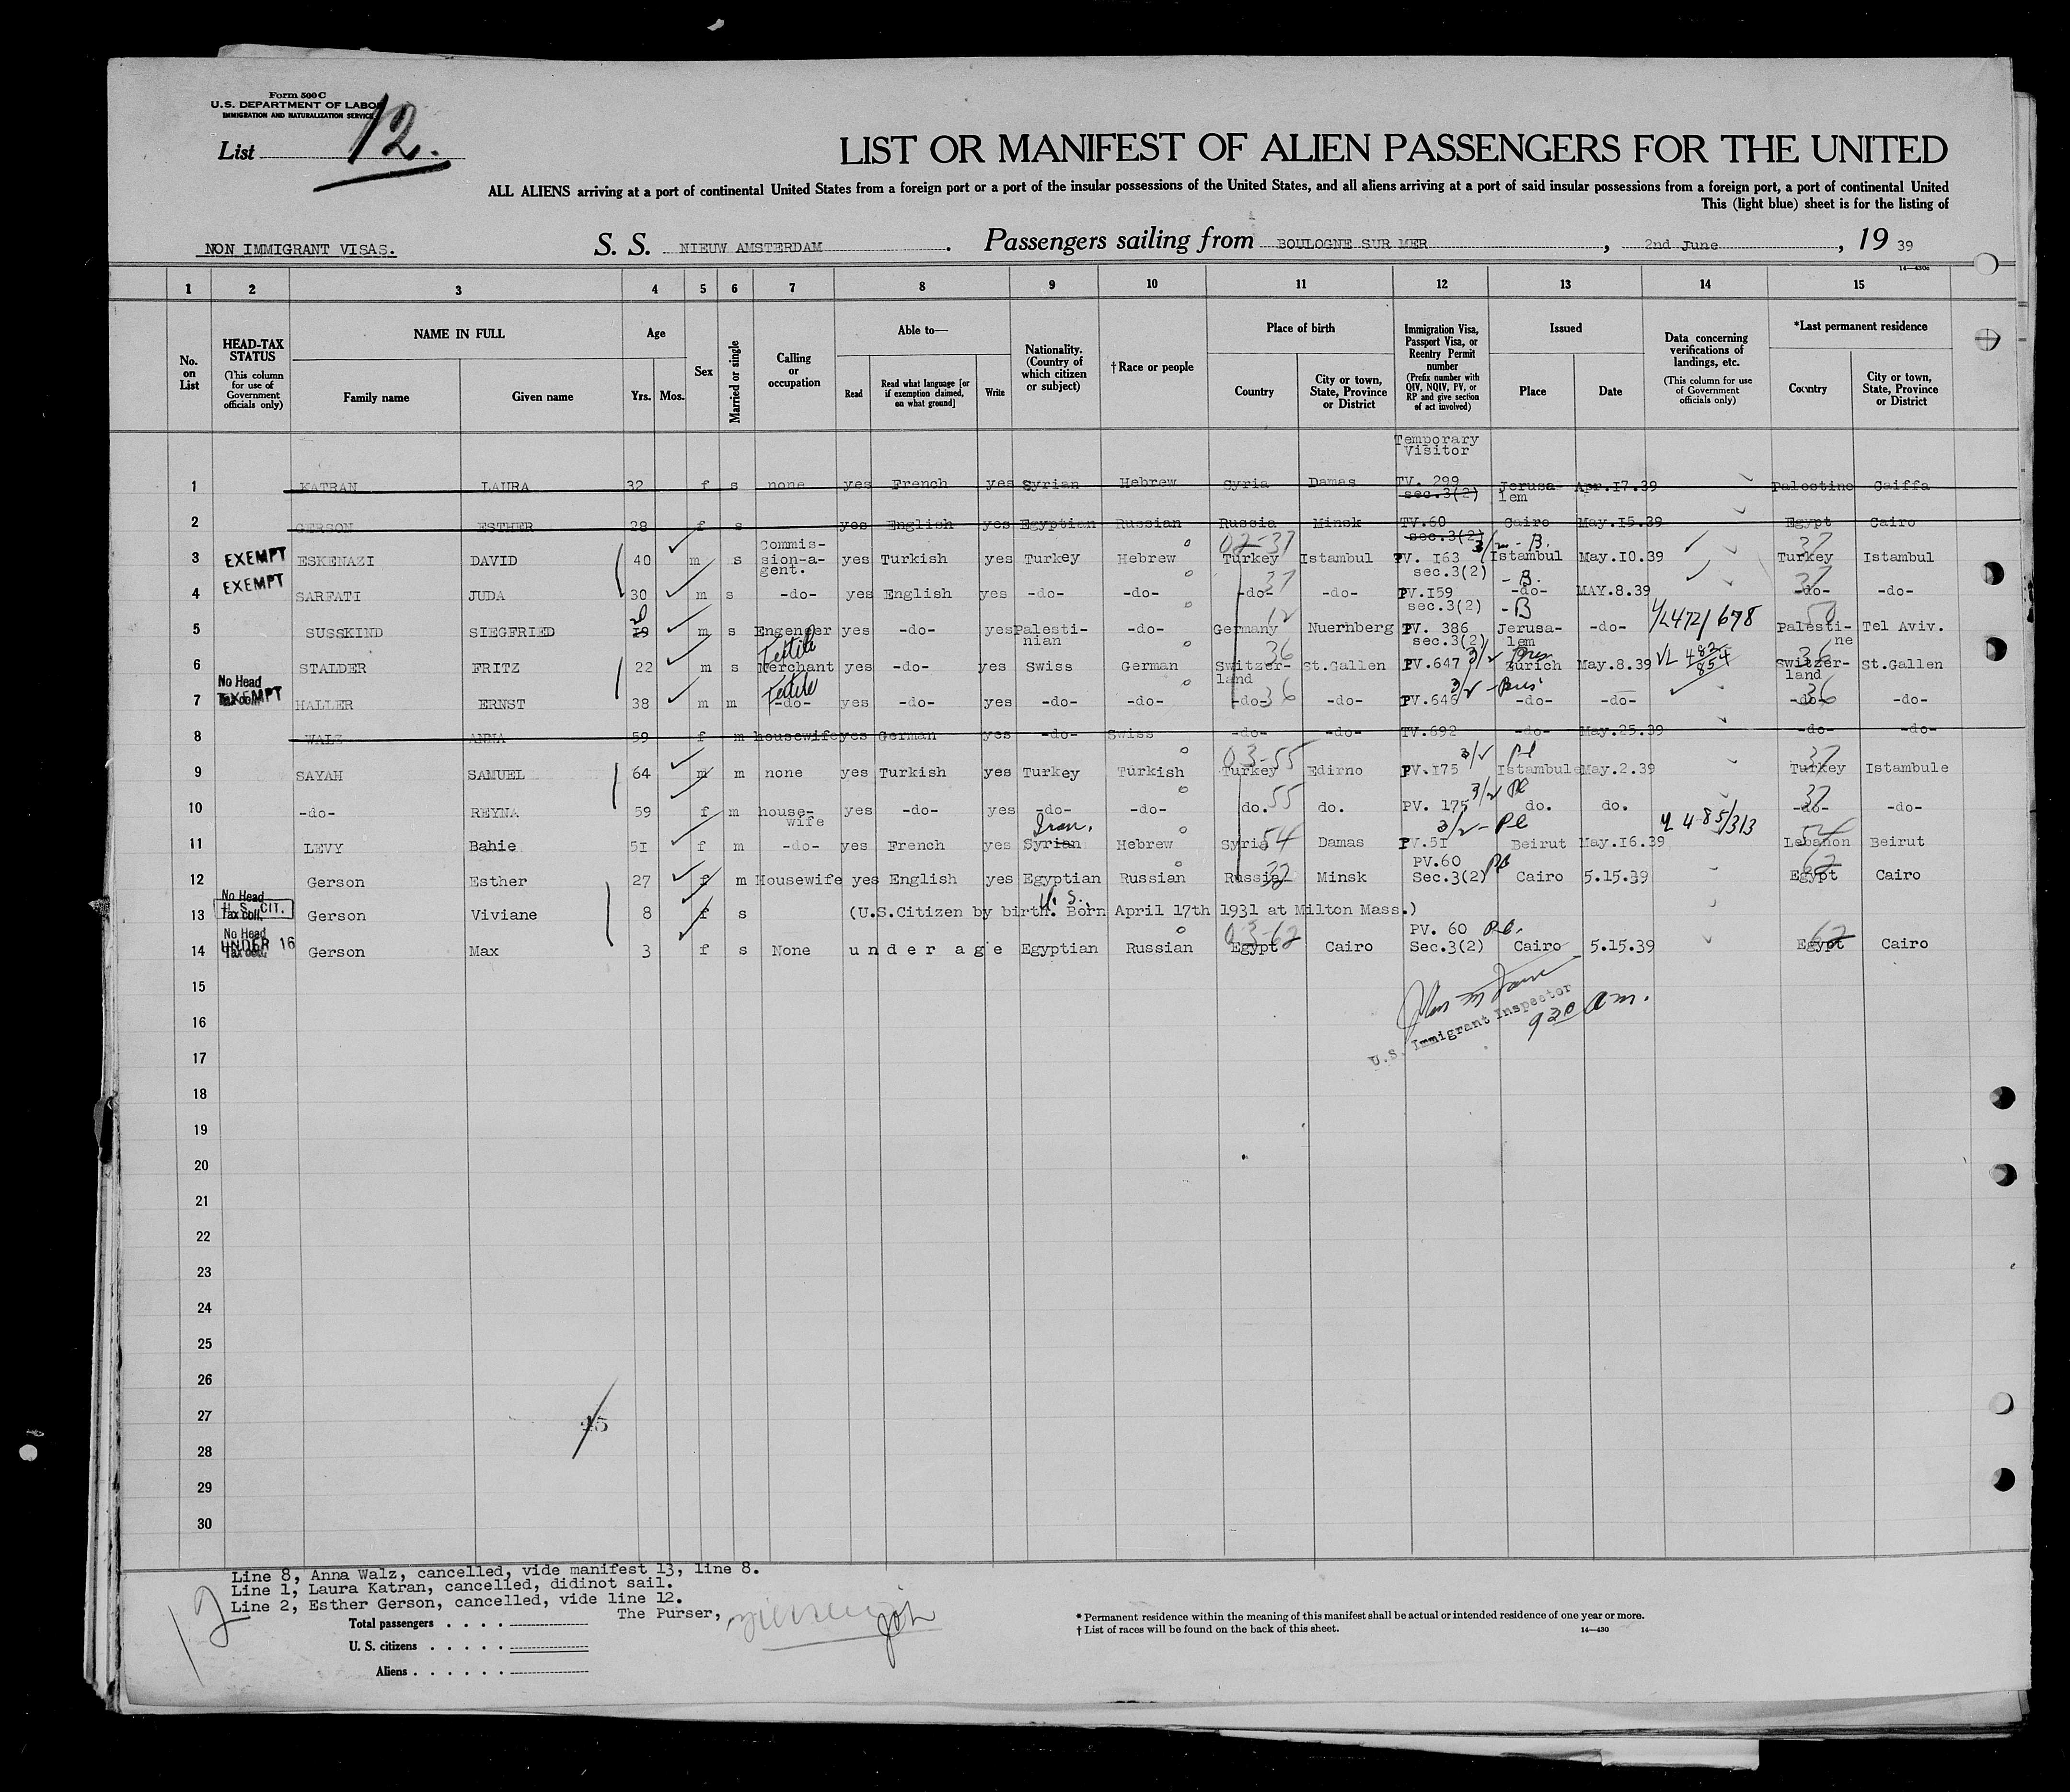 Form 500 C
U.S. DEPARTMENT OF LABOR
IMMIGRATION AND NATURALIZATION SERVICE
List 12.
LIST OR MANIFEST OF ALIEN PASSENGERS FOR THE UNITED
ALL ALIENS arriving at a port of continental United States from a foreign port or a port of the insular possessions of the United States, and all aliens arriving at a port of said insular possessions from a foreign port, a port of continental United
This (light blue) sheet is for the listing of
NON IMMIGRANT VISAS. S. S. NIEUW AMSTERDAM. Passengers sailing from BOULOGNE SUR MER, 2nd June, 19 39
14—430c
1 2 3 4 5 6 7 8 9 10 11 12 13 14 15
No. on List
HEAD-TAX STATUS (This column for use of Government officials only)
NAME IN FULL Family name Given name
Age Yrs. Mos.
Sex
Married or single
Calling or occupation
Able to— Read Read what language [or if exemption claimed, on what ground] Write
Nationality. (Country of which citizen or subject)
†Race or people
Place of birth Country City or town, State, Province or District
Immigration Visa, Passport Visa, or Reentry Permit number (Prefix number with QIV, NQIV, PV, or RP and give section of act involved)
Issued Place Date
Data concerning verifications of landings, etc. (This column for use of Government officials only)
*Last permanent residence Country City or town, State, Province or District
Temporary Visitor
1 KATRAN LAURA 32 f s none yes French yes Syrian Hebrew Syria Damas TV. 299 sec.3(2) Jerusa-lem Apr.17.39 Palestine Caiffa
2 GERSON ESTHER 28 f s yes English yes Egyptian Russian Russia Minsk TV.60 sec.3(2) Cairo May.15.39 Egypt Cairo
3 EXEMPT ESKENAZI DAVID 40 m s Commis-sion-a-gent. yes Turkish yes Turkey Hebrew 02-37 Turkey Istambul PV. 163 sec.3(2) 3/2 - B. Istambul May.10.39 37 Turkey Istambul
4 EXEMPT SARFATI JUDA 30 m s -do- yes English yes -do- -do- 37 -do- -do- PV.159 sec.3(2) - B. -do- MAY.8.39 37 -do- -do-
5 SUSSKIND SIEGFRIED 19 20 m s Engeneer yes -do- yes Palesti-nian -do- 12 Germany Nuernberg PV. 386 sec.3(2) - B Jerusa-lem -do- VL472/678 50 Palesti-ne Tel Aviv.
6 STALDER FRITZ 22 m s Textile Merchant yes -do- yes Swiss German 36 Switzer-land St.Gallen PV.647 3/2 Bus Zurich May.8.39 VL 483/854 36 Switzer-land St.Gallen
7 No Head Tax coll. EXEMPT HALLER ERNST 38 m m Textile -do- yes -do- yes -do- -do- -do- 36 -do- PV.646 3/2 - Bus -do- -do- 36 -do- -do-
8 WALZ ANNA 59 f m housewife yes German yes -do- Swiss -do- -do- TV.692 -do- May.25.39 -do- -do-
9 SAYAH SAMUEL 64 m m none yes Turkish yes Turkey Turkish 03-55 Turkey Edirno PV.175 3/2 Pl Istambule May.2.39 37 Turkey Istambule
10 -do- REYNA 59 f m house-wife yes -do- yes -do- -do- do. 55 do. PV. 175 3/2 Pl do. do. 37 -do- -do-
11 LEVY Bahie 51 f m -do- yes French yes Syrian Iran. Hebrew Syria 54 Damas PV.51 3/2 - Pl Beirut May.16.39 VL 485/313 54 Lebanon Beirut
12 Gerson Esther 27 f m Housewife yes English yes Egyptian Russian Russia 32 Minsk PV.60 Sec.3(2) Pl Cairo 5.15.39 62 Egypt Cairo
13 No Head Tax coll. U. S. CIT. Gerson Viviane 8 f s U. S. (U.S.Citizen by birth. Born April 17th 1931 at Milton Mass.)
14 No Head Tax coll. UNDER 16 Gerson Max 3 f s None under age Egyptian Russian 03-62 Egypt Cairo PV. 60 Sec.3(2) Pl. Cairo 5.15.39 62 Egypt Cairo
15
16
U.S. Immigrant Inspector
9 30 am.
17
18
19
20
21
22
23
24
25
26
27 45
28
29
30
Line 8, Anna Walz, cancelled, vide manifest 13, line 8.
Line 1, Laura Katran, cancelled, didinot sail.
Line 2, Esther Gerson, cancelled, vide line 12.
The Purser,
12
Total passengers
U. S. citizens
Aliens
* Permanent residence within the meaning of this manifest shall be actual or intended residence of one year or more.
† List of races will be found on the back of this sheet.
14—430